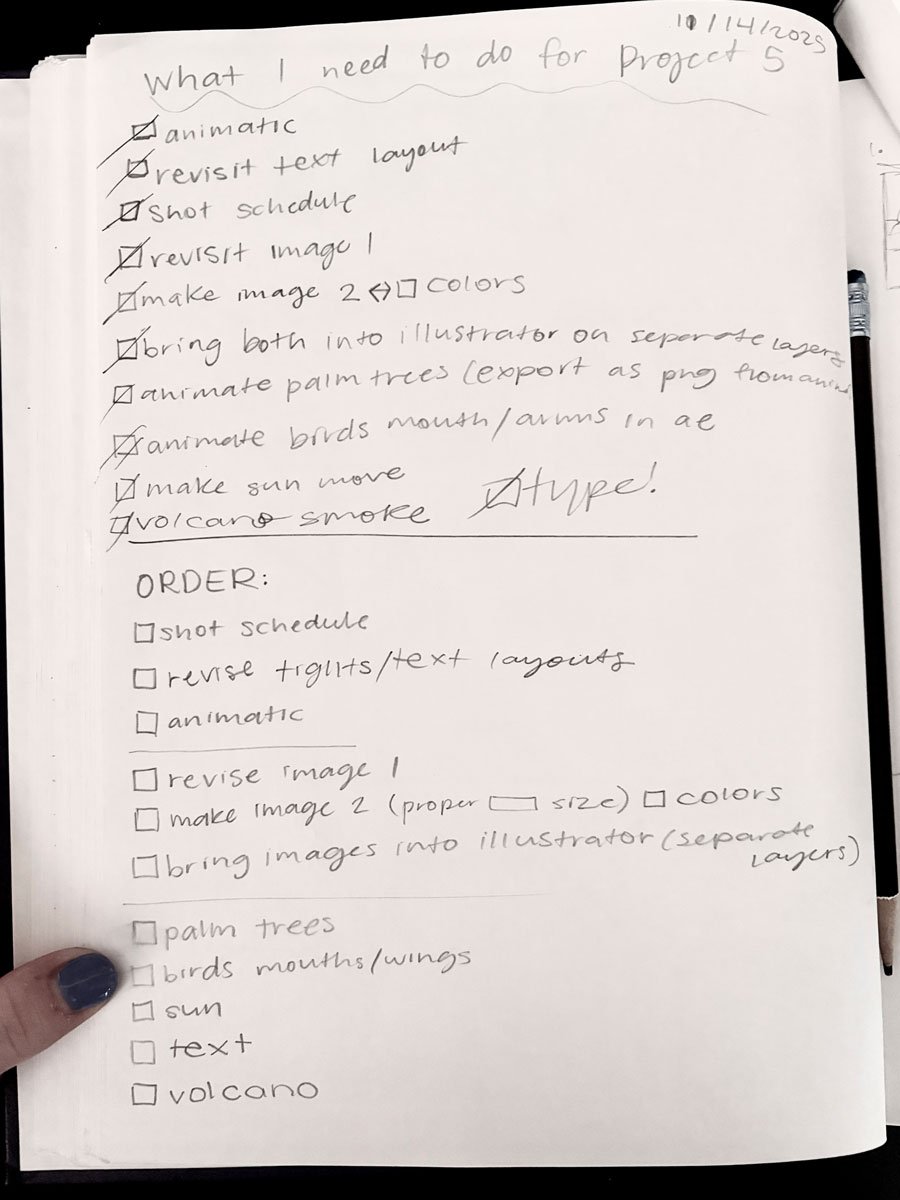 11/14/2025
What I need to do for Project 5
animatic
revisit text layout
shot schedule
revisit image 1
make image 2 ↔ □ colors
bring both into illustrator on separate layers
animate palm trees (export as png from
animate birds mouth/arms in ae
make sun move
type!
volcano smoke
ORDER:
shot schedule
revise /text layouts
animatic
revise image 1
make image 2 (proper size) □ colors
bring images into illustrator (separate
layers)
palm trees
birds mouths/wings
sun
text
volcano